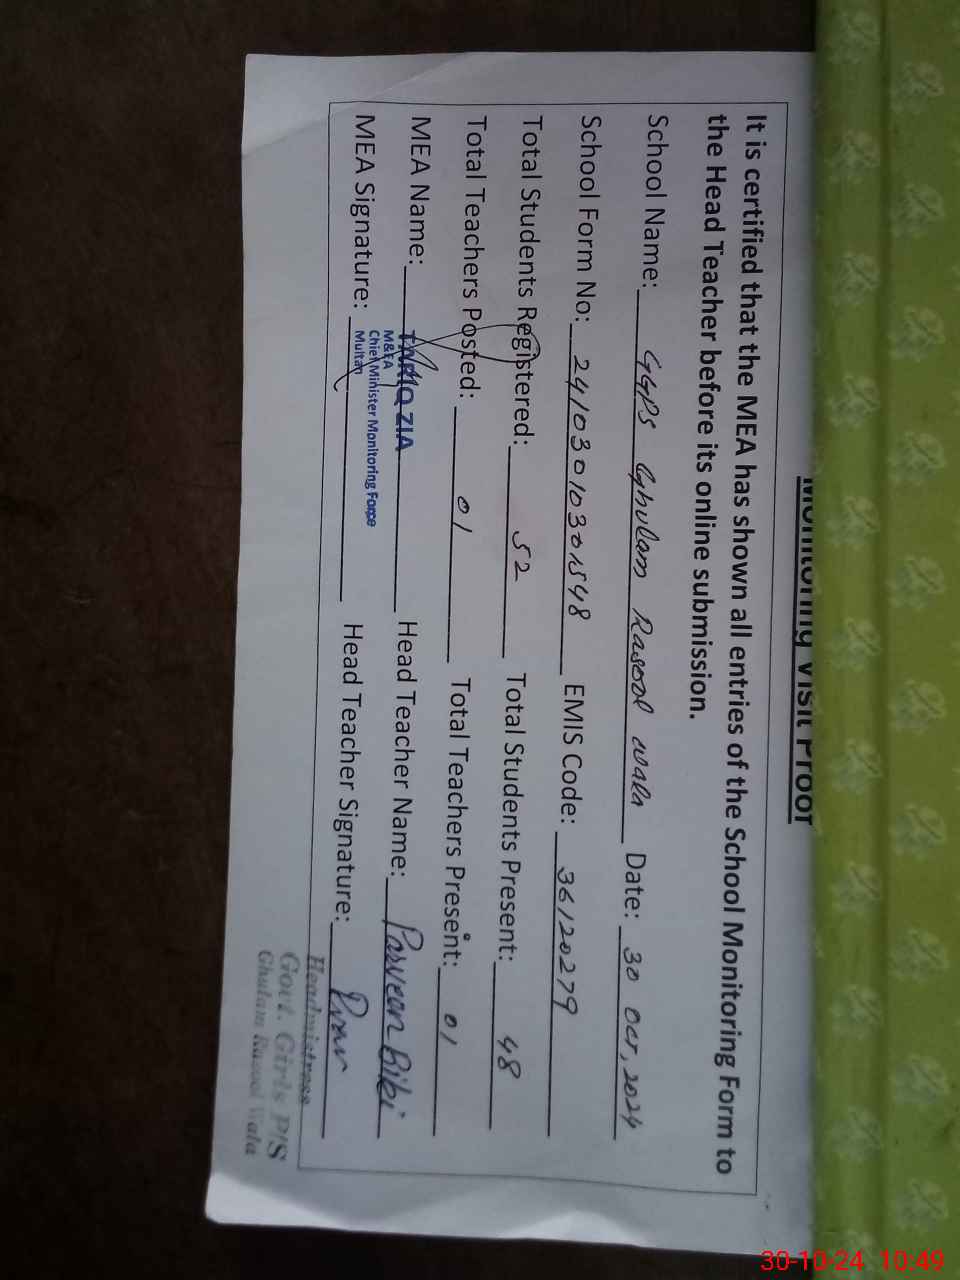 Monitoring Visit Proof
It is certified that the MEA has shown all entries of the School Monitoring Form to
the Head Teacher before its online submission.
School Name: GGPS Ghulam Rasool wala Date: 30 Oct, 2024
School Form No: 24103010301548 EMIS Code: 36120279
Total Students Registered: 52 Total Students Present: 48
Total Teachers Posted: 01 Total Teachers Present: 01
MEA Name: TARIQ ZIA Head Teacher Name: Parveen Bibi
M&EA
Chief Minister Monitoring Force
Multan
MEA Signature: Head Teacher Signature:
Headmistress
Govt. Girls P/S
Ghulam Rasool Wala
30-10-24 10:49